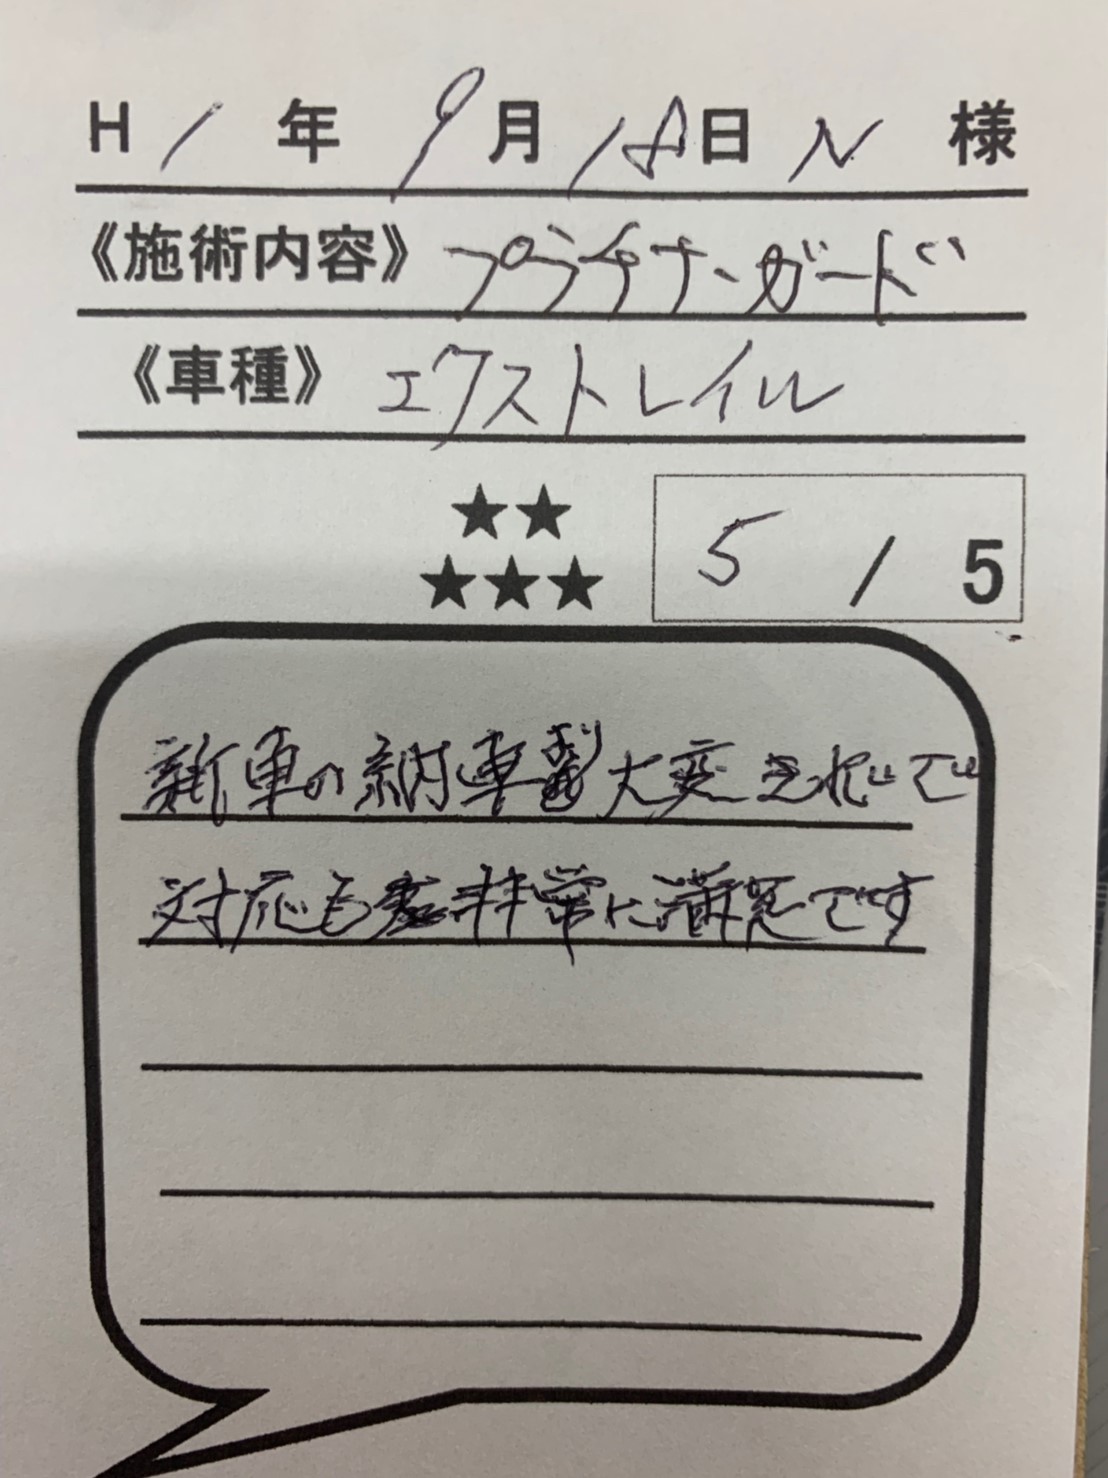 H 1 年 9 月 18 日 N 様
《施術内容》 プラチナ・ガード
《車種》 エクストレイル
★★
★★★
5 / 5
新車の納車より大変きれいで
対応も非常に満足です